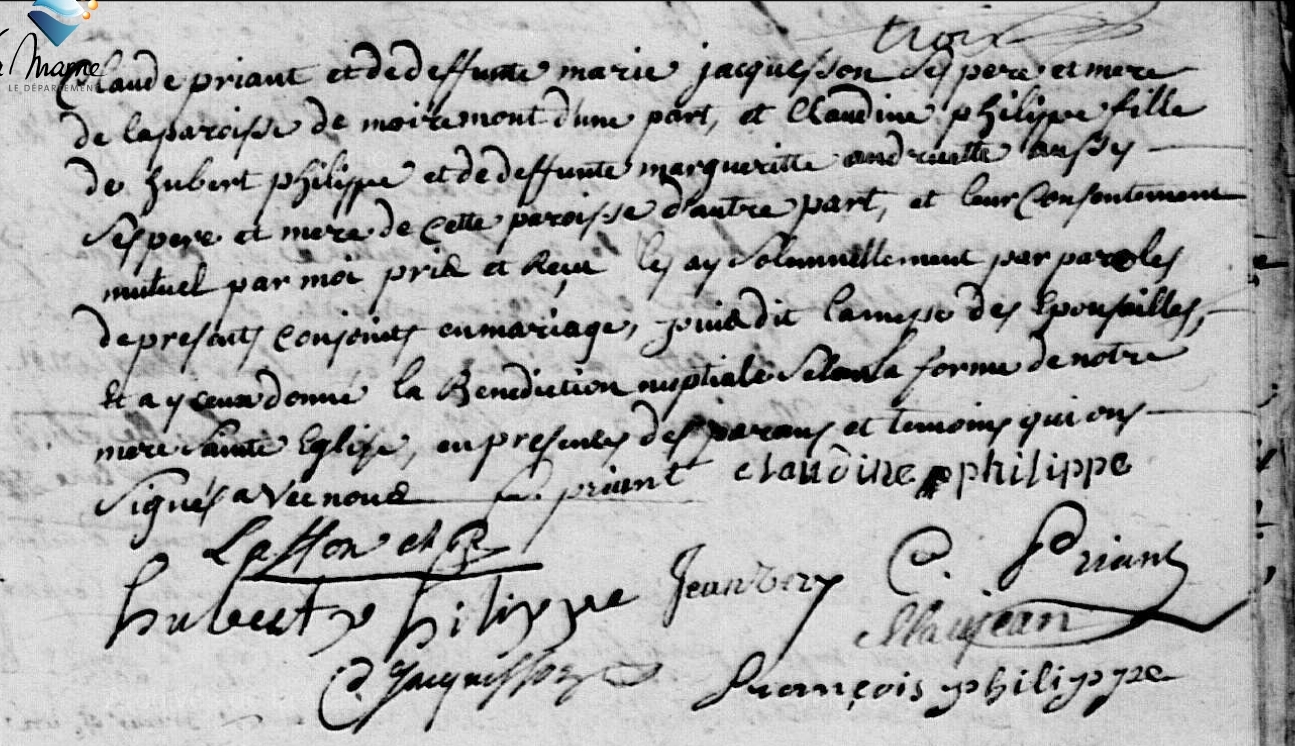 trois
La Marne
LE DÉPARTEMENT
Claude priant et de deffunte marie jacquesson ses pere et mere
de la paroisse de moiremont d'une part, et Claudine philippe fille
de hubert philippe et de deffunte margueritte andruette aussy
ses pere et mere de cette paroisse d'autre part, et leur Consentement
mutuel par moi pris et Reçu les ay Solemnellement par paroles
de presents conjoints en mariage, puis dit la messe des Epousailles,
et a y ceux donné la Benediction nuptiale Selon la forme de notre
mere Sainte Eglise, en presences des parans et temoins qui ons
Signés avec nous
priant claudine philippe
hubert philippe Jean C. Priant
Maujean
Jacquesson françois philippe